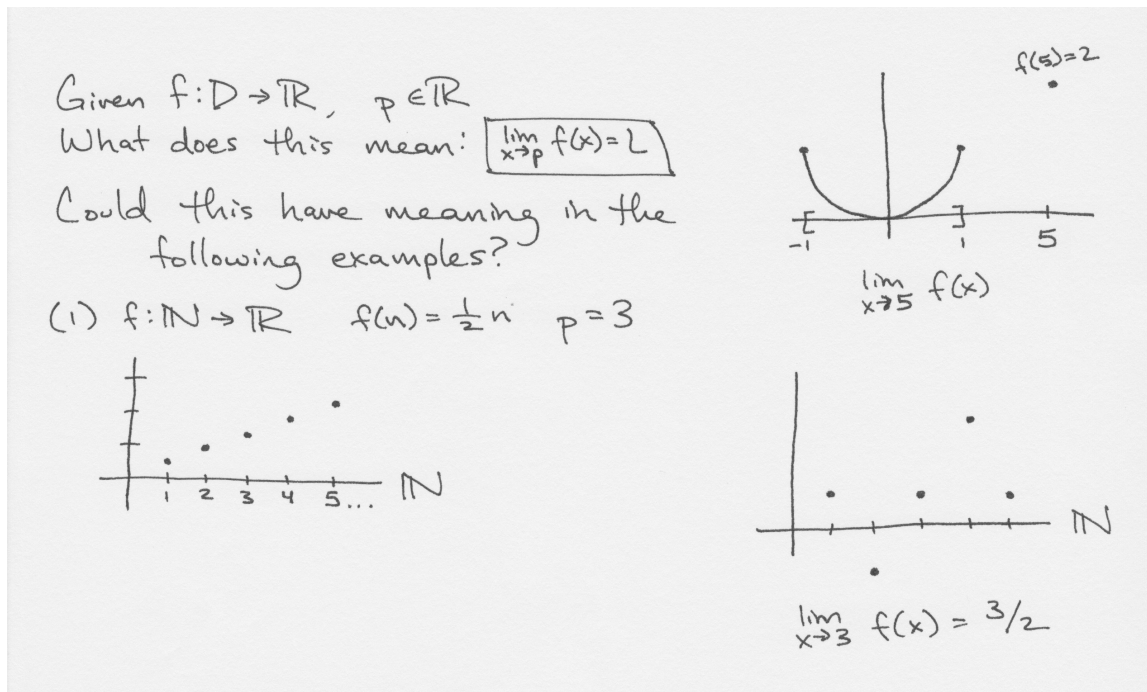 Given f:D→ℝ, p∈ℝ
What does this mean: lim x→p f(x)=L
Could this have meaning in the
following examples?
(1) f:ℕ→ℝ f(n)=½n p=3
1 2 3 4 5... ℕ
f(5)=2
-1 1 5
lim x→5 f(x)
ℕ
lim x→3 f(x) = 3/2